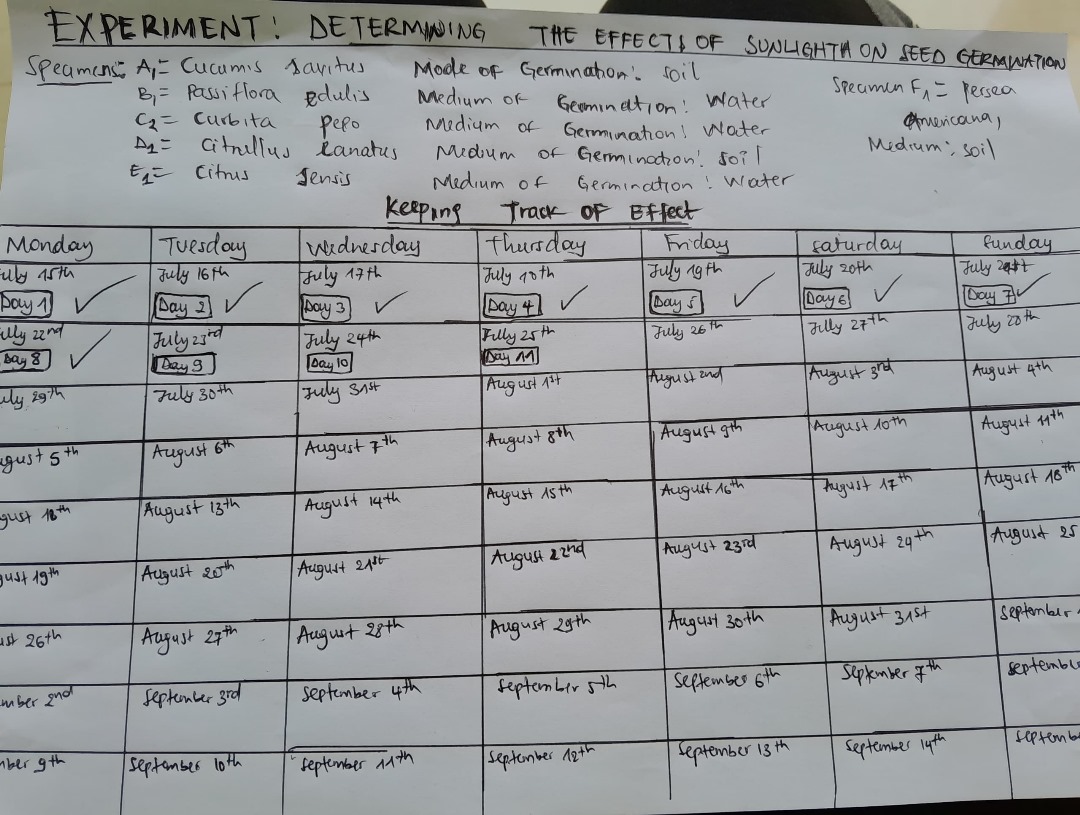 EXPERIMENT: DETERMINING THE EFFECTS OF SUNLIGHTH ON SEED GERMINATION
Specimens: A₁= Cucumis savitus Mode of Germination: soil
B₁= Passiflora edulis Medium of Germination: Water
C₂= Curbita pepo Medium of Germination: Water
D₂= Citrullus lanatus Medium of Germination: soil
E₁= Citrus sensis Medium of Germination: Water
Specimen F₁= persea
Americana,
Medium: soil
Keeping Track OF Effect
Monday Tuesday Wednesday Thursday Friday Saturday Sunday
uly 15th July 16th July 17th July 18th July 19th July 20th July
Day 1 Day 2 Day 3 Day 4 Day 5 Day 6 Day 7
uly 22nd July 23rd July 24th July 25th July 26th July 27th July 28th
Day 8 Day 9 Day 10 Day 11
uly 29th July 30th July 31st August 1st August 2nd August 3rd August 4th
gust 5th August 6th August 7th August 8th August 9th August 10th August 11th
gust August 13th August 14th August 15th August 16th August 17th August 18th
gust 19th August 20th August 21st August 22nd August 23rd August 24th August 25
ust 26th August 27th August 28th August 29th August 30th August 31st September
mber 2nd September 3rd September 4th September 5th September 6th September 7th Septembe
mber 9th September 10th September 11th September 12th September 13th September 14th Septemb